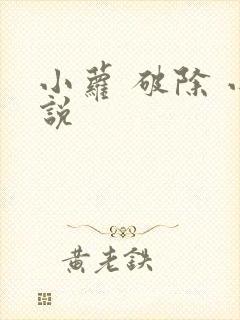 小蘿 破除
說
黃老鉄